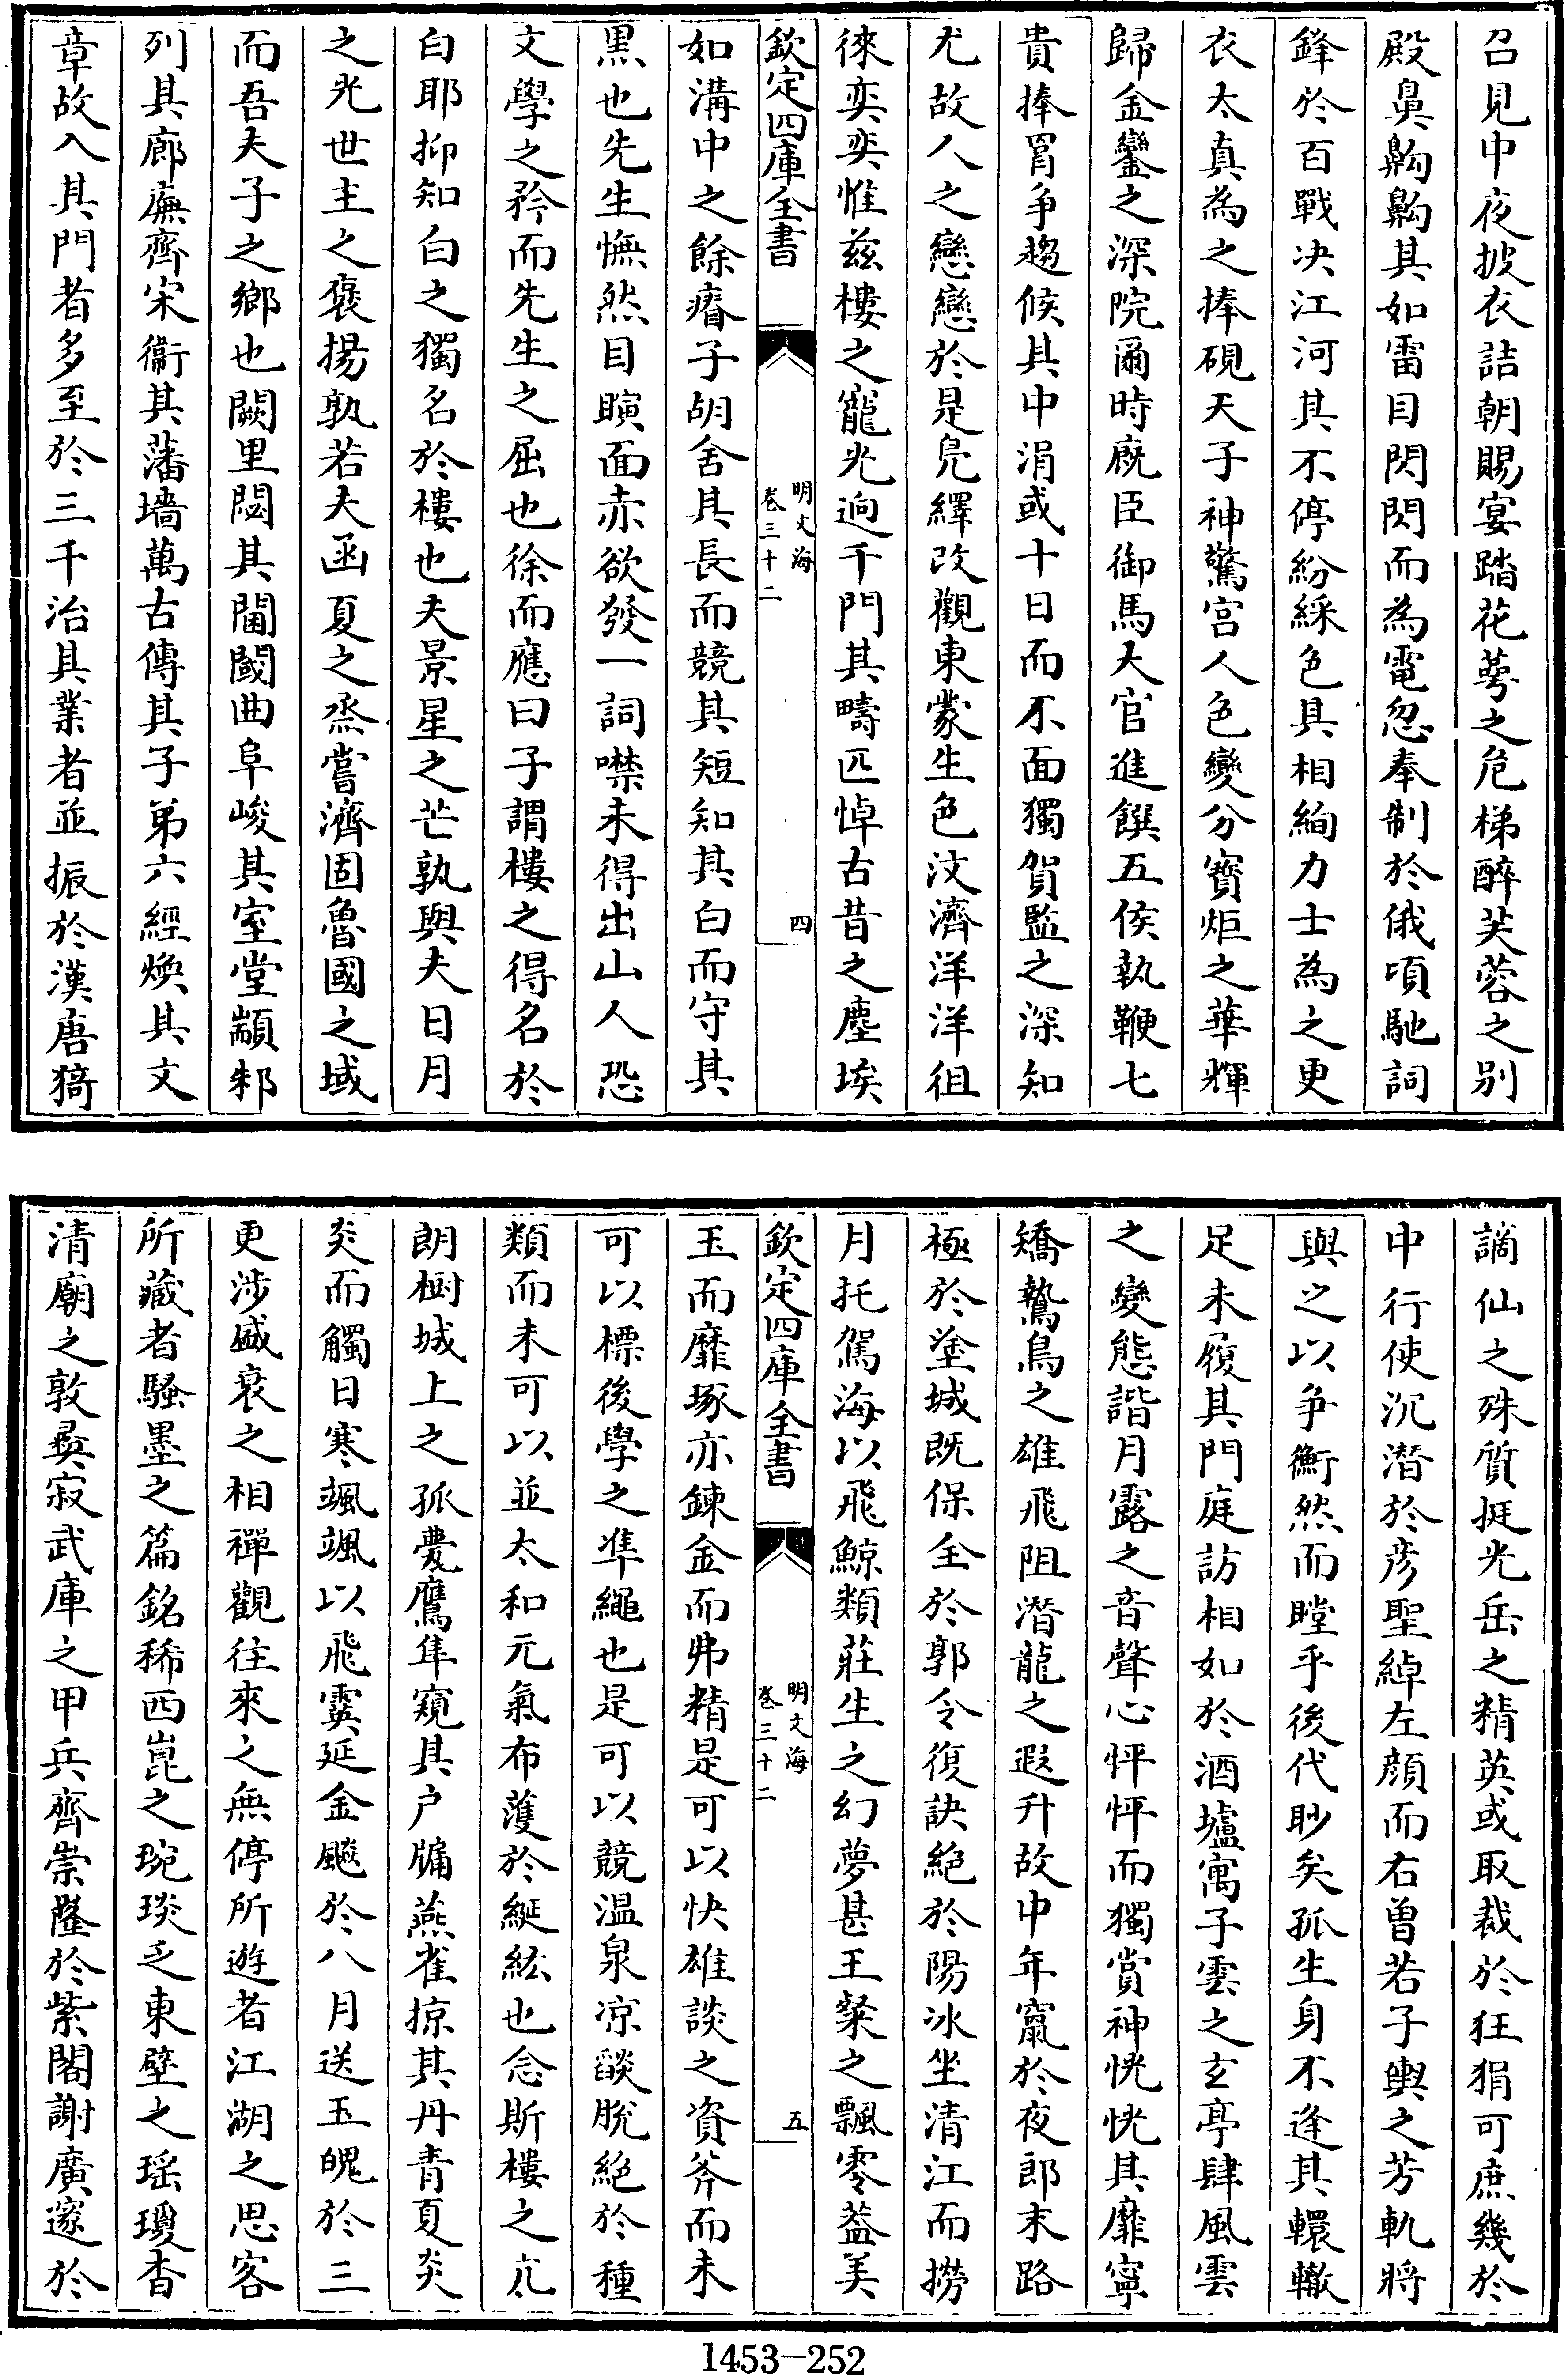 召見中夜披衣詰朝賜宴踏花萼之危梯醉芙蓉之别
殿鼻齁齁其如雷目閃閃而為電忽奉制於俄頃馳詞
鋒於百戰决江河其不停紛綵色其相絢力士為之更
衣太真為之捧硯天子神驚宫人色變分寳炬之華輝
歸金鑾之深院爾時厩臣御馬大官進饌五侯執鞭七
貴捧罥争趨候其中涓或十日而不面獨賀監之深知
尤故人之戀戀於是凫繹改觀東蒙生色汶濟洋洋徂
徠奕奕惟兹樓之寵光逈千門其疇匹悼古昔之塵埃
欽定四庫全書
明文海
卷三十二
四
如溝中之餘瘠子胡舍其長而競其短知其白而守其
黒也先生憮然目瞚面赤欲發一詞噤未得出山人恐
文學之矜而先生之屈也徐而應曰子謂樓之得名於
白耶抑知白之獨名於樓也夫景星之芒孰與夫日月
之光世主之褒揚孰若夫函夏之烝嘗濟固魯國之域
而吾夫子之鄉也闕里閟其閫閾曲阜峻其室堂顓邾
列其廊廡齊宋衞其藩墻萬古傳其子弟六經煥其文
章故入其門者多至於三千治其業者並振於漢唐猗
謫仙之殊質挺光岳之精英或取裁於狂狷可庶幾於
中行使沉潜於彦聖綽左顔而右曽若子輿之芳軌將
與之以争衡然而瞠乎後代眇矣孤生身不逢其轘轍
足未履其門庭訪相如於酒壚寓子雲之玄亭肆風雲
之變態諧月露之音聲心怦怦而獨賞神恍恍其靡寧
矯鷙鳥之雄飛阻潜龍之遐升故中年竄於夜郎末路
極於塗城既保全於郭令復訣絶於陽冰坐清江而撈
月托駕海以飛鯨類莊生之幻夢甚王粲之飄零葢美
欽定四庫全書
明文海
卷三十二
五
玉而靡琢亦鍊金而弗精是可以快雄談之資斧而未
可以標後學之凖繩也是可以競温泉凉燄脫絶於種
類而未可以並太和元氣布濩於綖紘也念斯樓之亢
朗樹城上之孤甍鷹隼窺其户牖燕雀掠其丹青夏炎
炎而觸日寒颯颯以飛霙延金飈於八月送玉魄於三
更涉盛衰之相禪觀往來之無停所遊者江湖之思客
所藏者騷墨之篇銘稀西崑之琬琰乏東壁之瑶瓊杳
清廟之敦彞寂武庫之甲兵齊崇隆於紫閣謝廣邃於
1453-252